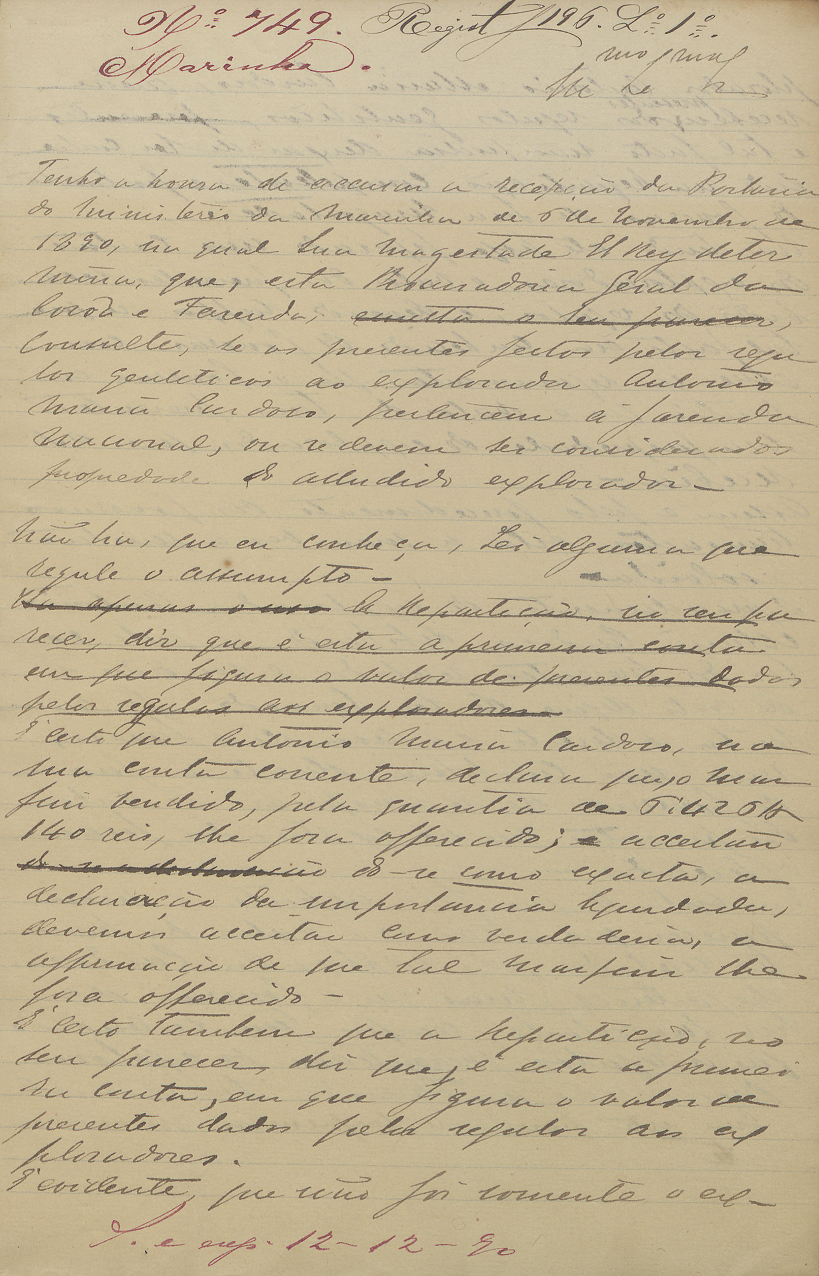 Nº 749. Regist f 196. Lº 1º
Marinha.
Tenho a honra de accusar a recepção da Portaria
do Ministerio da Marinha de 6 de Novembro de
1890, na qual Sua Magestade El Rey deter
mina, que, esta Procuradoria Geral da
Coroa e Fazenda, emitta o seu parecer,
Consulte, se os presentes feitos pelos regu
los gentilicos ao explorador Antonio
Maria Cardoso, pertencem á fazenda
nacional, ou se devem ser considerados
propriedade do alludido explorador –
Não ha, que eu conheça, Lei alguma que
regule o assumpto –
Ha apenas o uso A Repartição, no seu pa
recer, diz que é esta a primeira conta
em que figura o valor de presentes dados
pelos regulos aos exploradores –
É certo que Antonio Maria Cardoso, na
sua conta corrente, declara que, o mar
fim vendido, pela quantia de 6:426$
140 reis, lhe fora offerecido; e acceitan
do-se a declaração do-se como exacta, a
declaração da importancia liquidada,
devemos acceitar como verdadeira, a
affirmação de que tal marfim lhe
fora offerecido –
É certo tambem que a Repartição, no
seu parecer, diz que, é esta a primei
ra conta, em que figura o valor de
presentes dados pelos regulos aos ex
ploradores.
É evidente, que não foi somente o ex–
S. e exp. 12–12–90